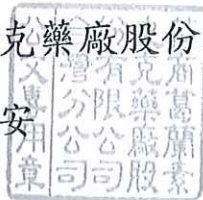 克藥廠股份
安
商葛蘭素
克藥廠股
有限公司
灣分公司
文專用章